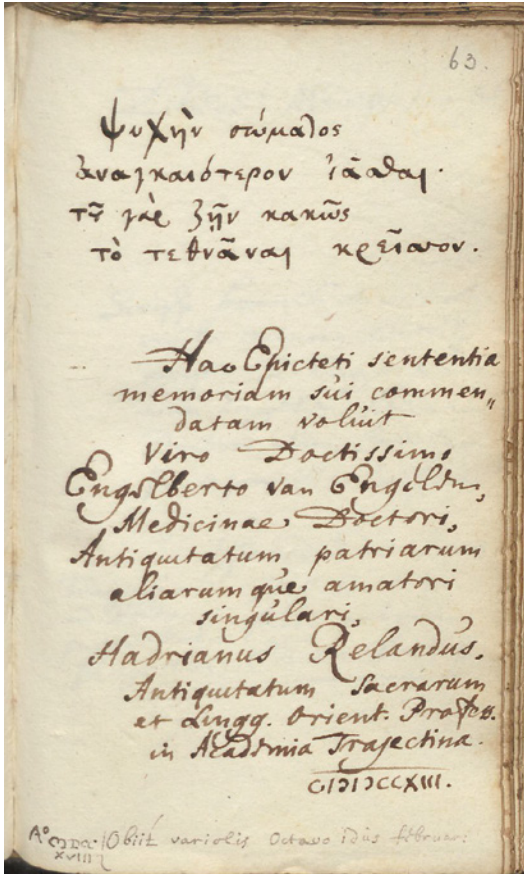 63.
ψυχὴν σώματος
ἀναγκαιότερον ἰᾶσθαι·
τοῦ γὰρ ζῆν κακῶς
τὸ τεθνᾶναι κρεῖσσον.
Hac Epicteti sententia
memoriam sui commen„
datam voluit
Viro Doctissimo
Engelberto van Engelen,
Medicinae Doctori,
Antiquitatum patriarum
aliarumque amatori
singulari,
Hadrianus Relandus,
Antiquitatum Sacrarum
et Lingg. Orient. Profess.
in Academia Trajectina.
CIƆIƆCCXIII.
Aº Obiit variolis Octavo idus februar:
XVIII